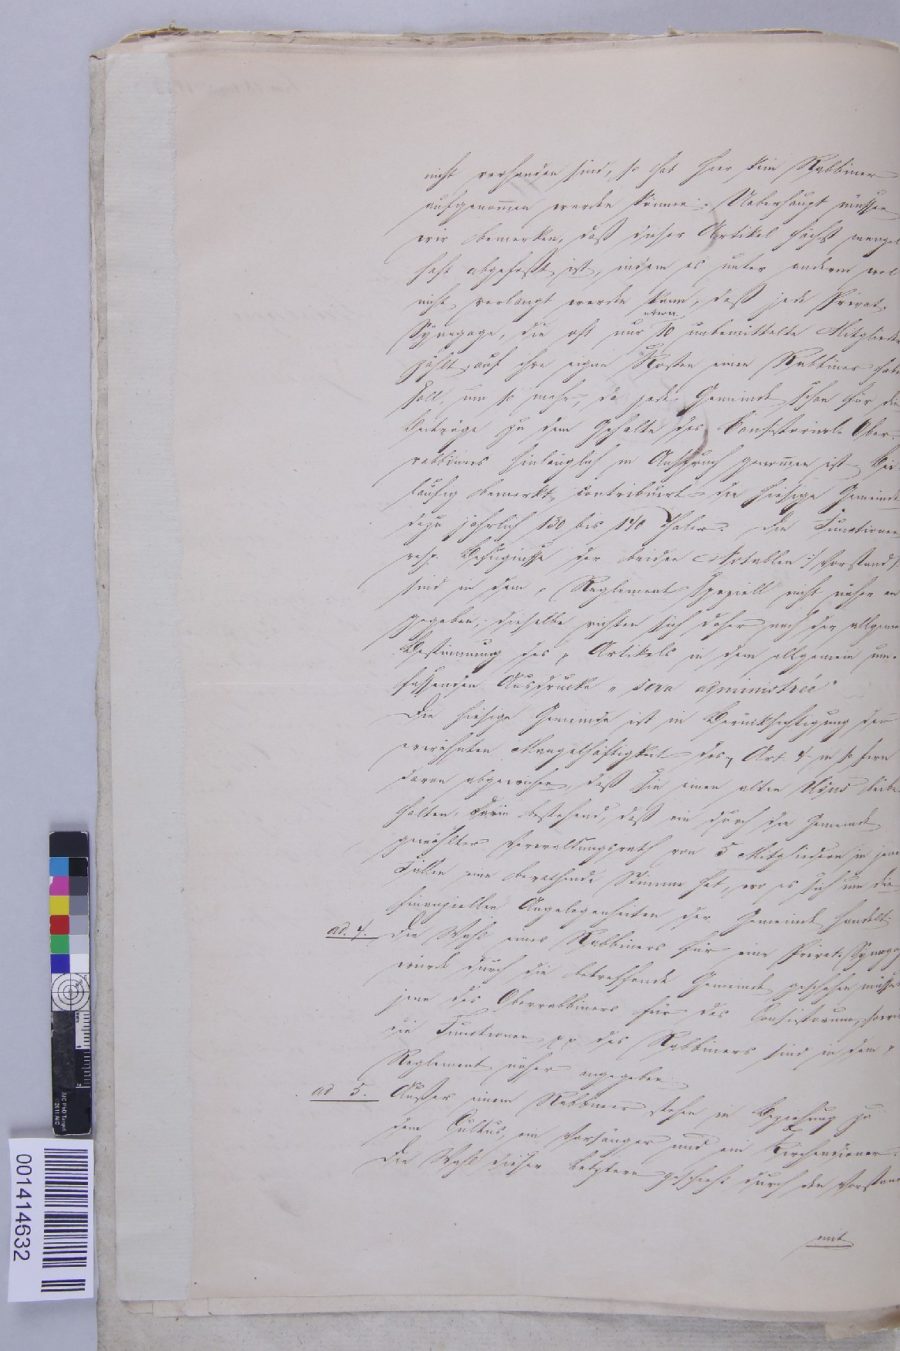 nicht vorhanden sind, so hat hier kein Rabbiner
aufgenommen werden können. Ueberhaupt müssen
wir bemerken, daß dieser Artikel höchst mangel
haft abgefaßt ist, indem es unter andern wol
nicht verlangt werden kann, daß jede Privat-
Synagoge, die oft nur etwa 10 unbemittelte Mitglieder
zählt, auf ihre eigne Kosten einen Rabbiner habe
soll, um so mehr, da jede Gemeinde schon für die
Beiträge zu dem Gehalte des Consistorial-Ober-
rabbiners hinlänglich in Anspruch genommen ist. Bei
läufig bemerkt, contribuirt die hiesige Gemeinde
dazu jährlich 130 bis 140 Thaler. Die Functionen
resp. Befugnisse der beiden Notablen /: Vorstand
sind in dem Reglement speziell nicht näher an
gegeben; dieselbe richten sich daher nach der allgem
Bestimmung des Artikels in dem allgemein um-
fassenden Ausdrucke „sera administrée“
Die hiesige Gemeinde ist in Berücksichtigung der
erwähnten Mangelhaftigkeit des Art. 4 in so fern
davon abgewichen, daß sie einen alten Usus beibe
halten, darin bestehend, daß ein durch die Gemeinde
gewählter Verwaltungsrath von 5 Mitgliedern in jene
Fällen eine berathende Stimme hat, wo es sich um die
finanziellen Angelegenheiten der Gemeinde handelt.
ad. 4. Die Wahl eines Rabbiners für eine Privat-Synagog
würde durch die betreffende Gemeinde geschehen müssen
jene des Oberrabbiners für das Consistorium, sowie
die Functionen pp des Rabbiners sind in dem
Reglement näher angegeben.
ad 5. Außer einem Rabbiner stehen in Beziehung zu
dem Cultus ein Vorsänger und ein Kirchendiener.
Die Wahl dieser letztern geschieht durch den Vorstan
mit